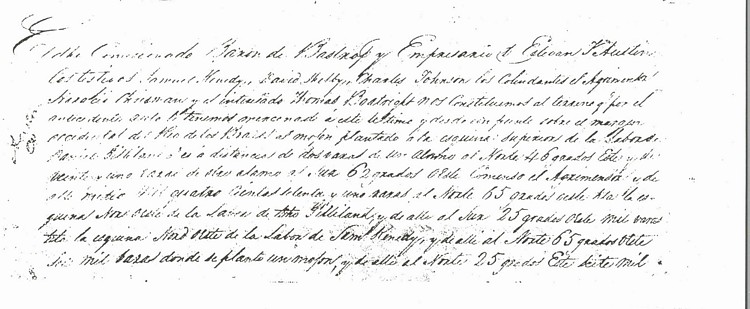 dho Comicionado Baron de Bastrop y Empresario Estevan F Austin
los testigos Samuel Kenedy, David Shelby, Charles Johnson los Colindantes el Agrimensor
Horatio Chrisman y el interesado Thomas Boatright nos Constituimos al terreno q por el
antecedente auto tenemos apersonado a este ultimo y desde un punto sobre el margen
occidental del Rio de los Brasos al mojon plantado a la esquina superior de la Labor de
Daniel Gilleland á distancia de dos varas de un alamo al Norte 46 grados Este y de
veinte y uno varas de otro alamo al Sur 62 grados Oeste Comenso el Agrimensor y de
alli midio mil quatro cientos setenta y uno varas al Norte 65 grados oeste hta la es-
quina Nor oeste de la Labor de dho Gilleland, y de alli al Sur 25 grados Oeste mil varas
hta la esquina Nord Oeste de la Labor de Saml Kenedy, y de alli al Norte 65 grados Oeste
mil varas donde se planto un mojon, y de alli al Norte 25 grados Este siete mil